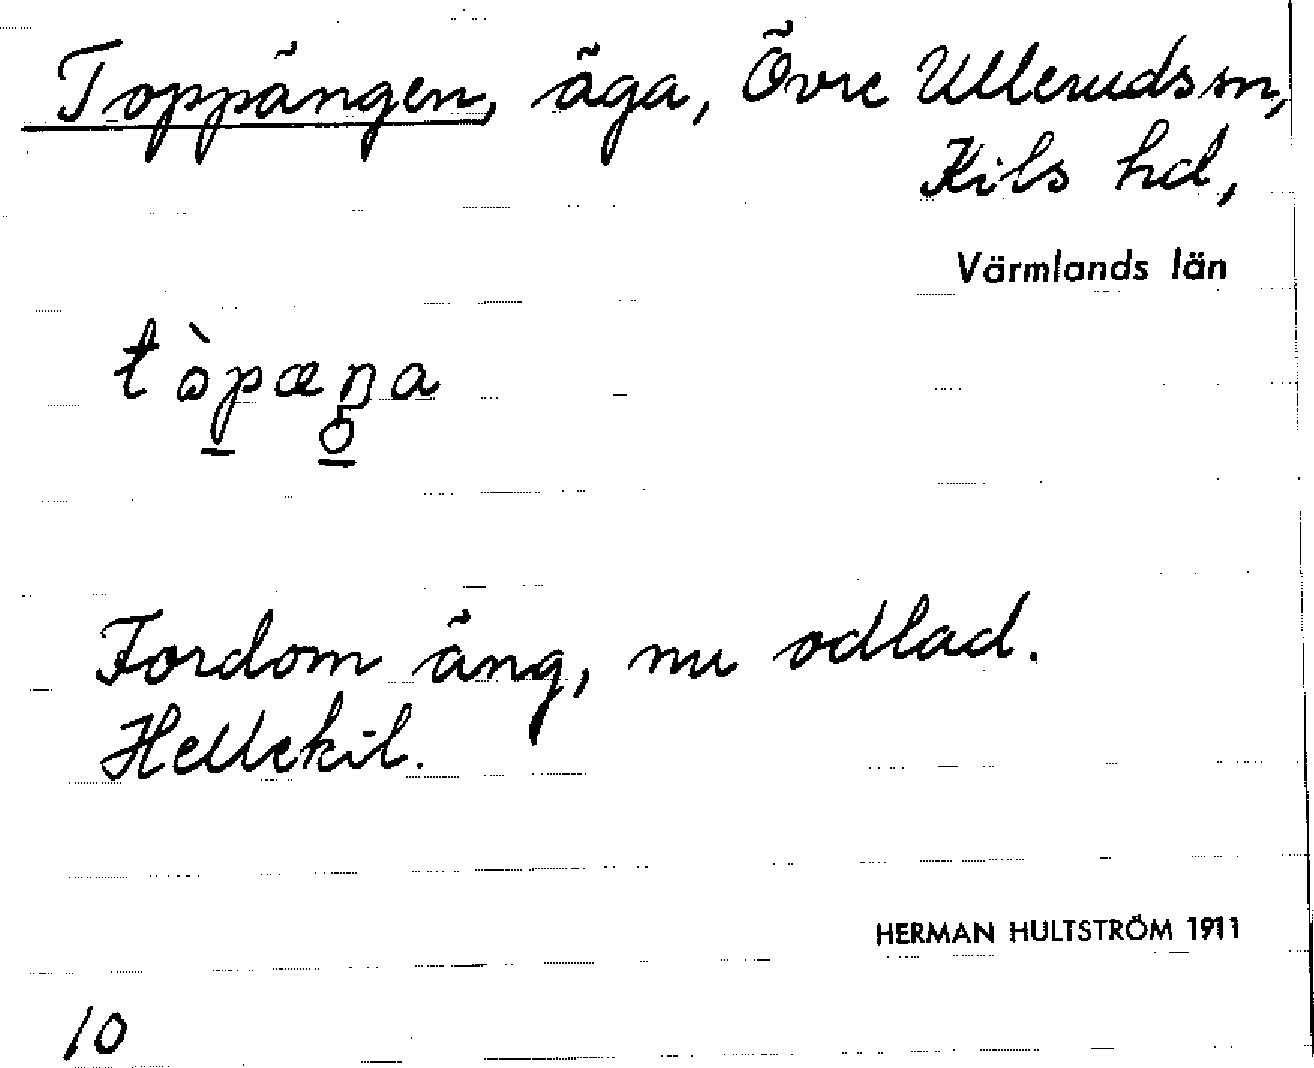 Toppängen, äga, Övre Ulleruds sn,
Kils hd,
Värmlands län
tòpæŋa
Fordom äng, nu odlad.
Hellekil.
HERMAN HULTSTRÖM 1911
10